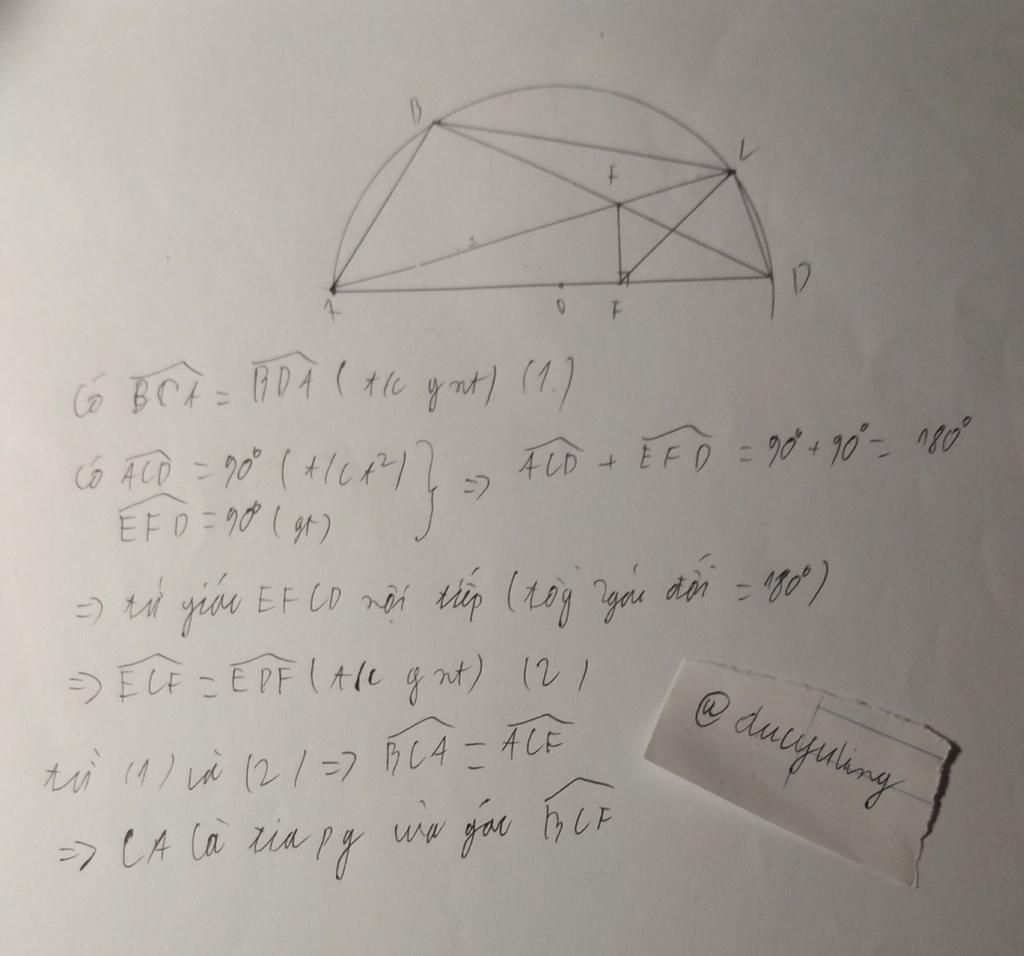 B
C
E
A
O
F
D
Có BCA = BDA (t/c gnt) (1)
Có ACD = 90° (t/c t²)
EFD = 90° (gt)
=> ACD + EFD = 90° + 90° = 180°
=> tứ giác EFCD nội tiếp (tổg 2góc đối = 180°)
=> ECF = EDF (t/c gnt) (2)
từ (1) và (2) => BCA = ACF
=> CA là tia pg của góc BCF
@ducyuling